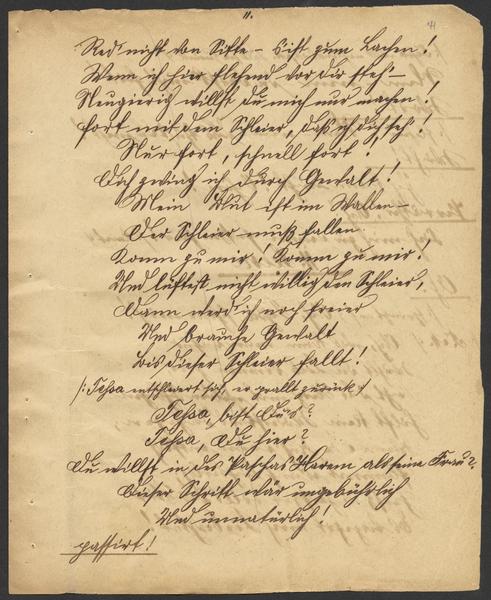 11.
41
Red' nicht von Sitte – 's ist zum Lachen!
Wenn ich hier flehend vor dir steh' –
Neugierig willst du mich nur machen!
Fort mit dem Schleier, daß ich dich seh'!
Nur fort, schnell fort!
Dich zwing ich durch Gewalt!
Mein Blut ist im Wallen –
Der Schleier muß fallen.
Komm zu mir! Komm zu mir!
Und lüftest nicht willig den Schleier,
Dann werd' ich noch freier
Und brauche Gewalt
bis dieser Schleier fällt!
/: Tessa entschleiert sich, er prallt zurück :/
Tessa, bist Du's?
Tessa, Du hier?
Du willst in des Paschas Harem als seine Frau?
Dieser Schritt wär ungebührlich
Und unnatürlich!
passirt!